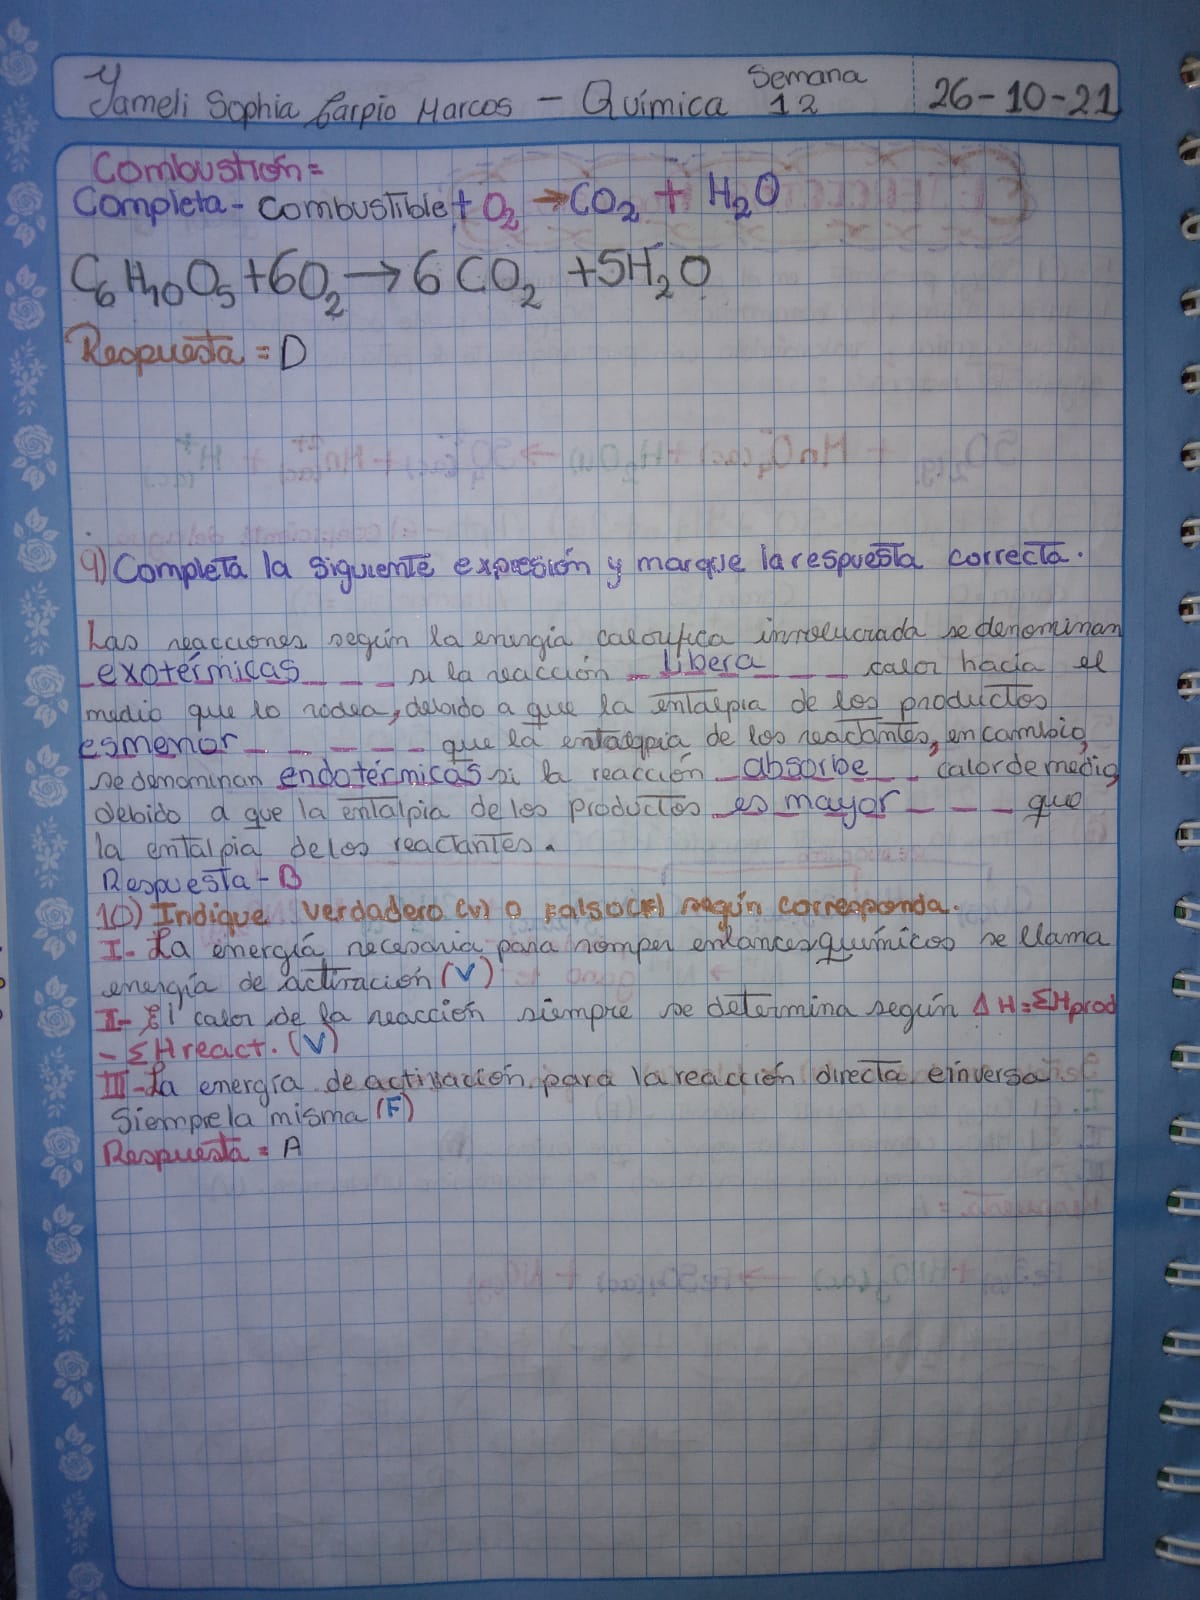 Yameli Sophia Carpio Marcos - Química Semana 12 26-10-21
Combustión=
Completa - Combustible + O2 → CO2 + H2O
C6H10O5 + 6O2 → 6CO2 + 5H2O
Respuesta = D
9) Completa la siguiente expresión y marque la respuesta correcta.
Las reacciones según la energía calorífica involucrada se denominan
exotérmicas si la reacción libera calor hacia el
medio que lo rodea, debido a que la entalpia de los productos
es menor que la entalpia de los reactantes, en cambio,
se denominan endotérmicas si la reacción absorbe calor de medio,
debido a que la entalpia de los productos es mayor que
la entalpia de los reactantes.
Respuesta - B
10) Indique verdadero (v) o Falso (F) según corresponda.
I- La energía necesaria para romper enlances químicos se llama
energía de activacion (V)
II- El calor de la reacción siempre se determina según ΔH = ΣHprod
- ΣH react. (V)
III- La energía de activación para la reacción directa e inversa
siempre la misma (F)
Respuesta = A